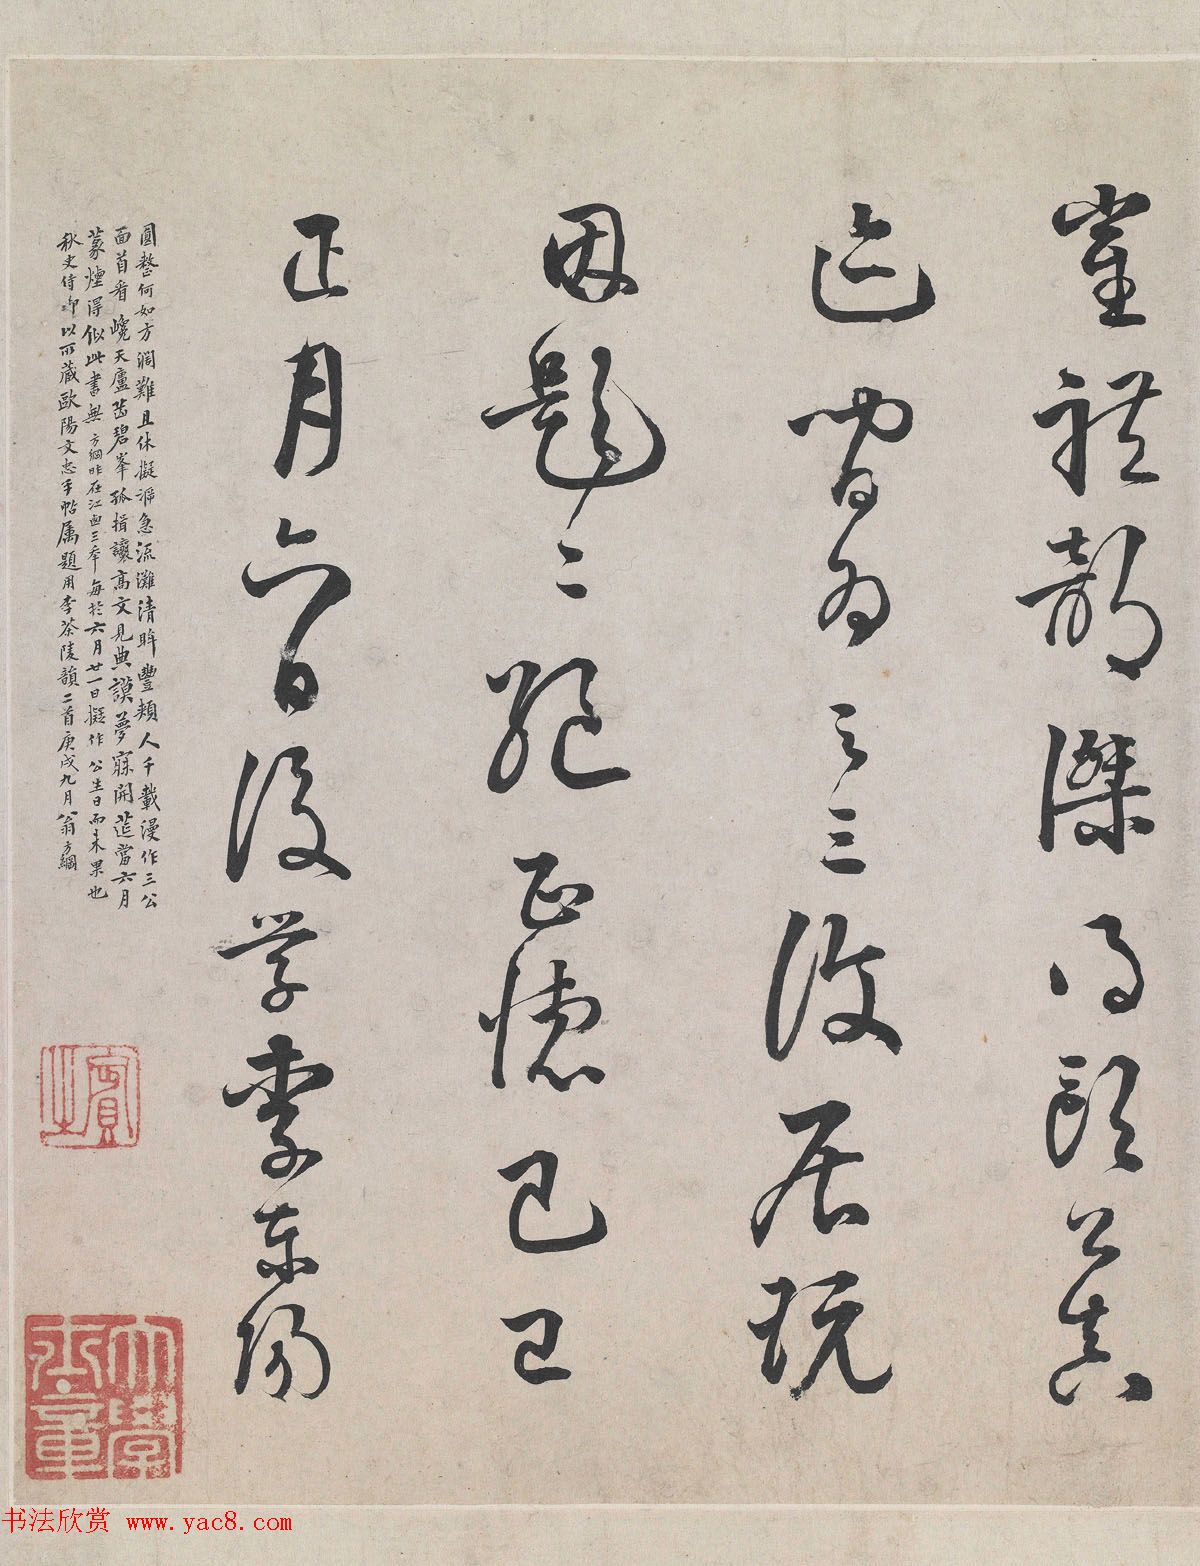 崔禮部傑得歐公真
迹間為之三復居既
因題二絕正德己巳
正月六日後學李東陽
圓整何如方濶難且休擬泝急流灘清眸豐頰人千載漫作三公
面首看巉天廬嶽碧峯孤揖讓高文見典謨夢寐開莚當六月
篆煙得似此書無方綱昨在江西三年每於六月廿一日擬作公生日而未果也
秋史侍御以所藏歐陽文忠手帖属題用李茶陵韻二首庚戌九月翁方綱
书法欣赏 www.yac8.com